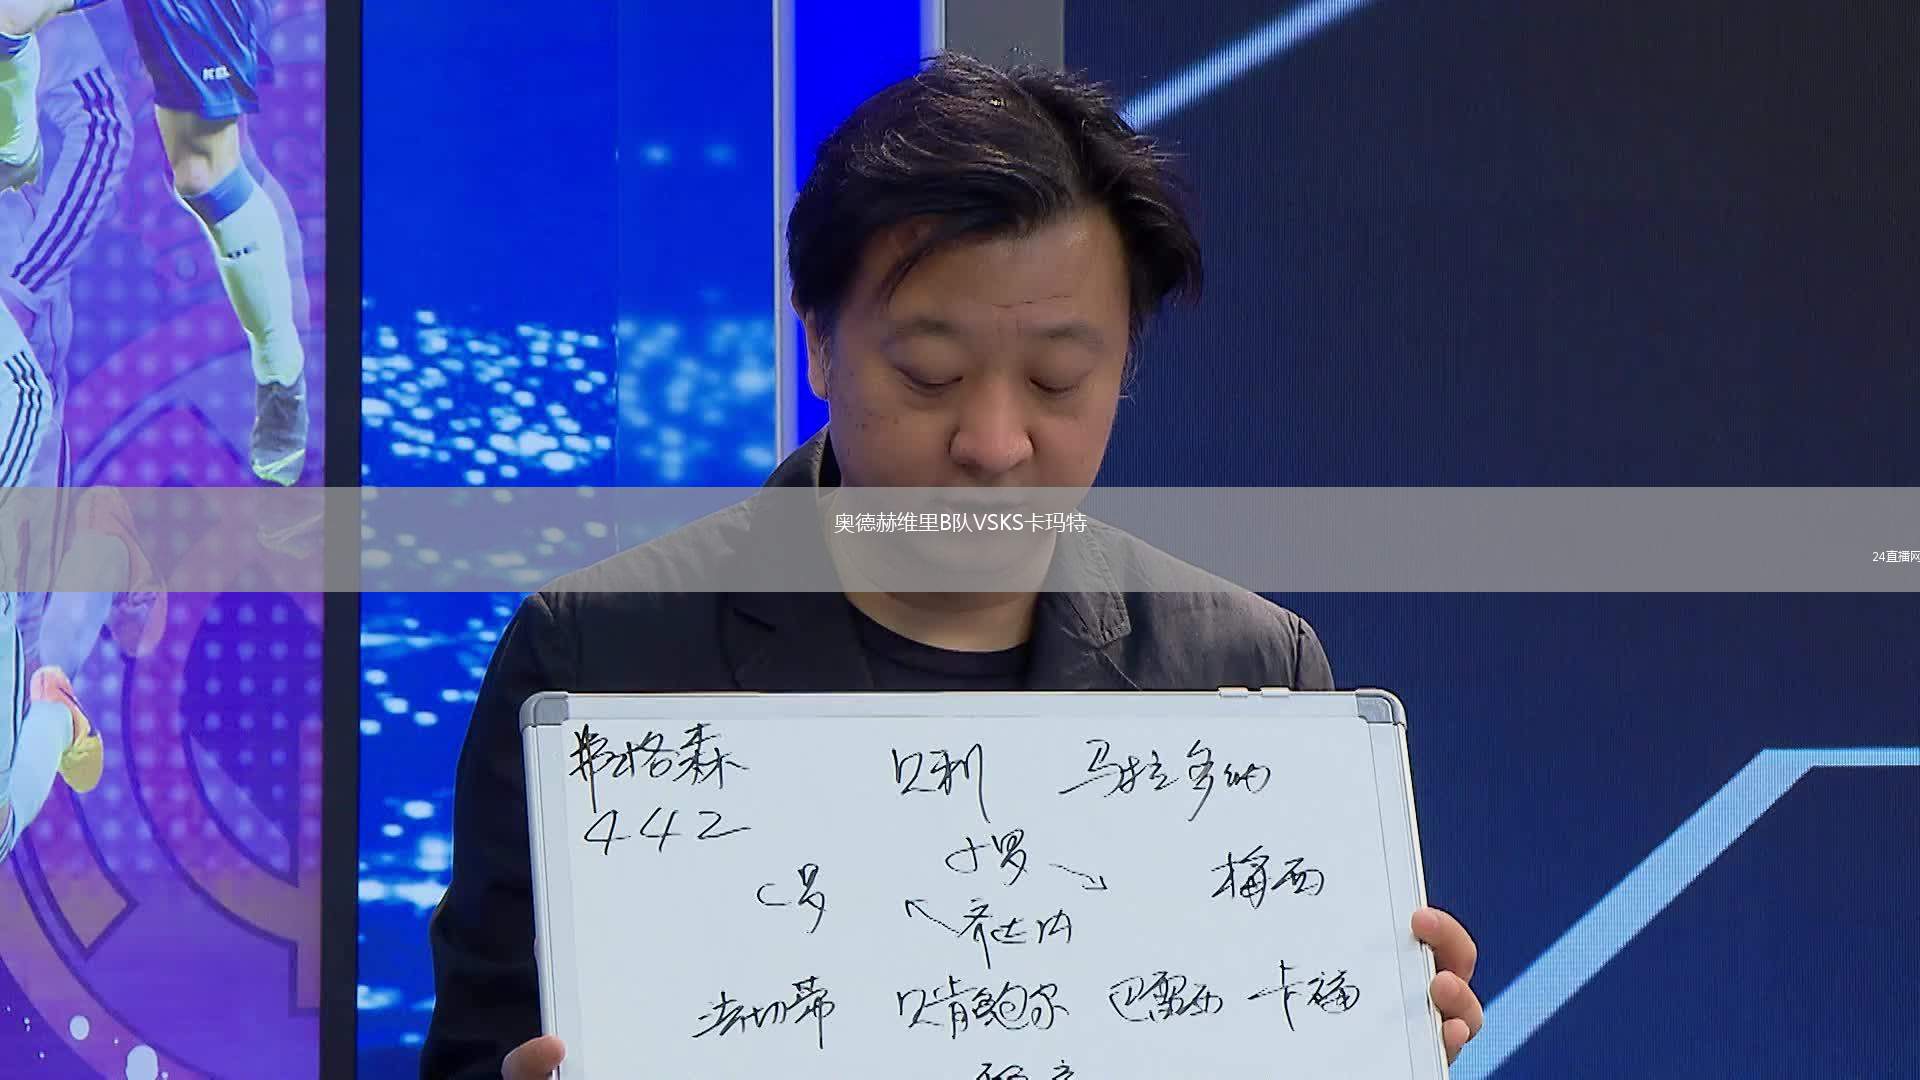 KEL
奥德赫维里B队VSKS卡玛特
24直播网
弗格森 贝利 马拉多纳
442
小罗
C罗 梅西
齐达内
法切蒂 贝肯鲍尔 巴雷西 卡福